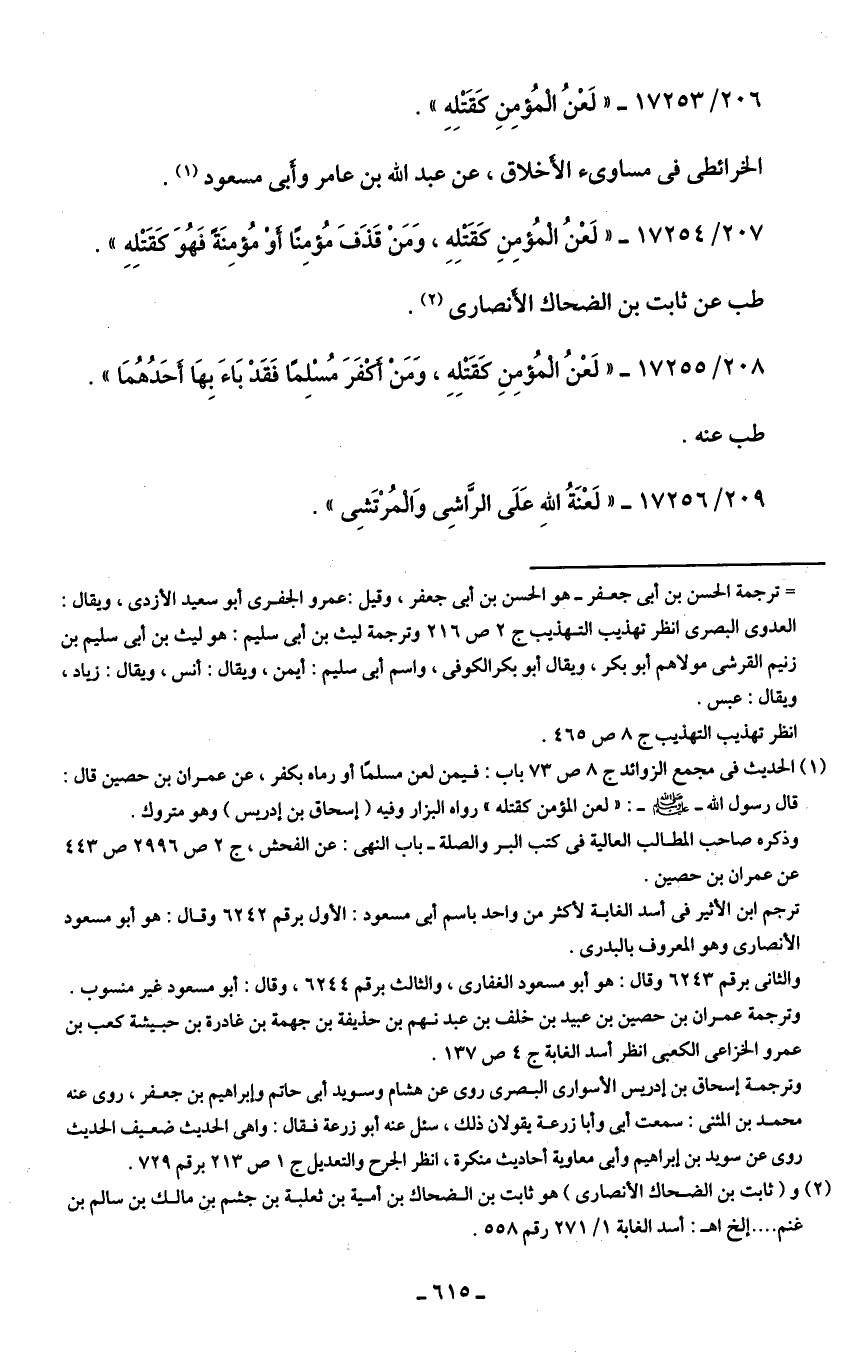 ٢٠٦/ ١٧٢٥٣ ـ « لَعْنُ الْمُؤمِنِ كَقَتْلِهِ » .
الخرائطى فى مساوىء الأخلاق ، عن عبد الله بن عامر وأبى مسعود (١) .
٢٠٧/ ١٧٢٥٤ ـ « لَعْنُ الْمُؤمِنِ كَقَتْلِهِ ، وَمَنْ قَذَفَ مُؤمِنًا أَوْ مُؤمِنَةً فَهُوَ كَقَتْلِهِ » .
طب عن ثابت بن الضحاك الأنصارى (٢) .
٢٠٨/ ١٧٢٥٥ ـ « لَعْنُ الْمُؤمِنِ كَقَتْلِهِ ، وَمَنْ أَكْفَرَ مُسْلِمًا فَقَدْ بَاءَ بِهَا أَحَدُهُمَا » .
طب عنه .
٢٠٩/ ١٧٢٥٦ ـ « لَعْنَةُ اللهِ عَلَى الرَّاشِى وَالْمُرْتَشِى » .
= ترجمة الحسن بن أبى جعفر ـ هو الحسن بن أبى جعفر ، وقيل :عمرو الجفرى أبو سعيد الأزدى ، ويقال :
العدوى البصرى انظر تهذيب التهذيب ج ٢ ص ٢١٦ وترجمة ليث بن أبى سليم : هو ليث بن أبى سليم بن
زنيم القرشى مولاهم أبو بكر ، ويقال أبو بكرالكوفى ، واسم أبى سليم : أيمن ، ويقال : أنس ، ويقال : زياد ،
ويقال : عبس .
انظر تهذيب التهذيب ج ٨ ص ٤٦٥ .
(١) الحديث فى مجمع الزوائد ج ٨ ص ٧٣ باب : فيمن لعن مسلمًا أو رماه بكفر ، عن عمران بن حصين قال :
قال رسول الله ـ ﷺ ـ : « لعن المؤمن كقتله » رواه البزار وفيه ( إسحاق بن إدريس ) وهو متروك .
وذكره صاحب المطالب العالية فى كتب البر والصلة ـ باب النهى : عن الفحش ، ج ٢ ص ٢٩٩٦ ص ٤٤٣
عن عمران بن حصين .
ترجم ابن الأثير فى أسد الغابة لأكثر من واحد باسم أبى مسعود : الأول برقم ٦٢٤٢ وقال : هو أبو مسعود
الأنصارى وهو المعروف بالبدرى .
والثانى برقم ٦٢٤٣ وقال : هو أبو مسعود الغفارى ، والثالث برقم ٦٢٤٤ ، وقال : أبو مسعود غير منسوب .
وترجمة عمران بن حصين بن عبيد بن خلف بن عبد نهم بن حذيفة بن جهمة بن غادرة بن حبيشة كعب بن
عمرو الخزاعى الكعبى انظر أسد الغابة ج ٤ ص ١٣٧ .
وترجمة إسحاق بن إدريس الأسوارى البصرى روى عن هشام وسويد أبى حاتم وإبراهيم بن جعفر ، روى عنه
محمد بن المثنى : سمعت أبى وأبا زرعة يقولان ذلك ، سئل عنه أبو زرعة فقال : واهى الحديث ضعيف الحديث
روى عن سويد بن إبراهيم وأبى معاوية أحاديث منكرة ، انظر الجرح والتعديل ج ١ ص ٢١٣ برقم ٧٢٩ .
(٢) و ( ثابت بن الضحاك الأنصارى ) هو ثابت بن الضحاك بن أمية بن ثعلبة بن جشم بن مالك بن سالم بن
غنم....إلخ اهـ : أسد الغابة ١/ ٢٧١ رقم ٥٥٨ .
ـ ٦١٥ ـ